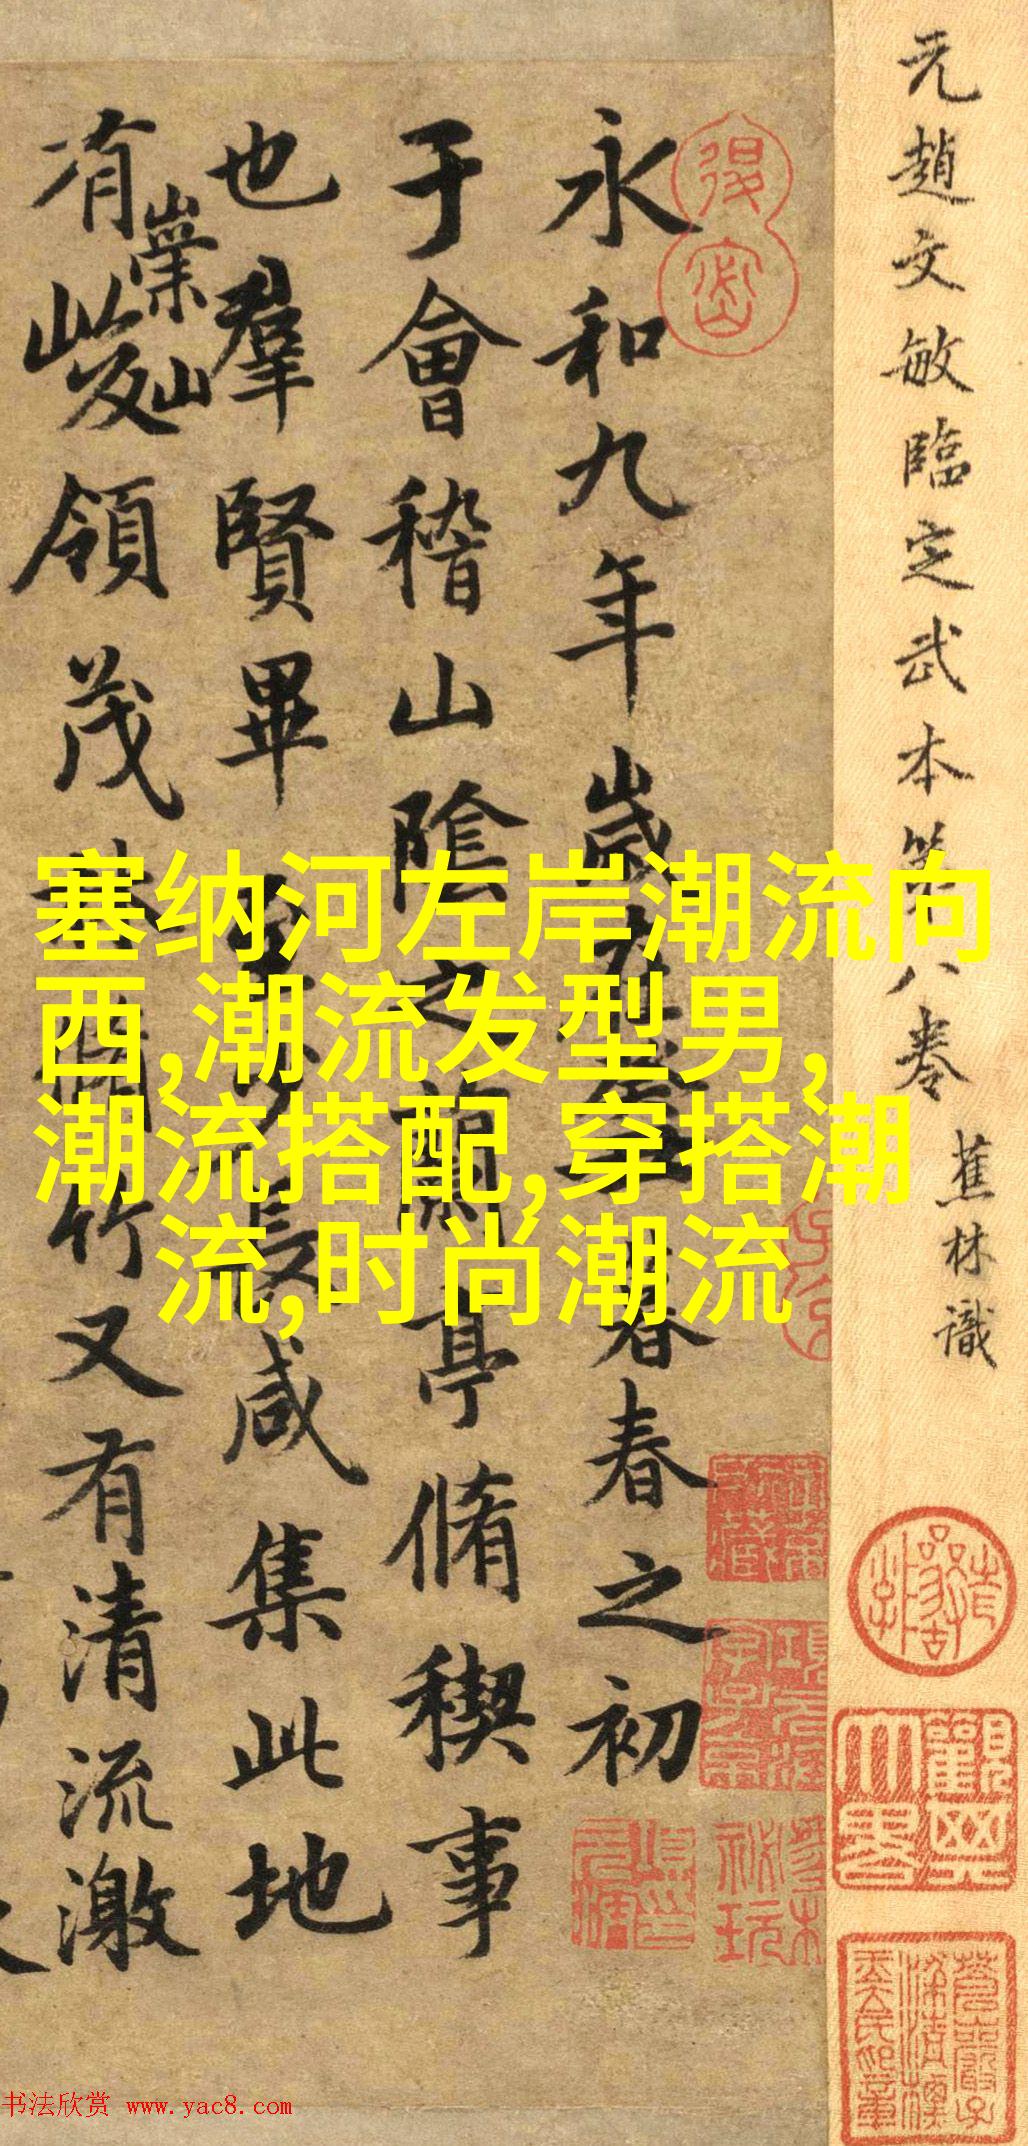 元趙文敏臨定武本第八卷
蕉林識
永和九年歲在癸丑暮春之初
于會稽山陰之蘭亭脩稧事
也羣賢畢至少長咸集此地
有崇山
峻領茂林脩竹又有清流激
塞纳河左岸潮流向
西,潮流发型男,
潮流搭配,穿搭潮
流,时尚潮流
书法欣赏 www.yac8.com